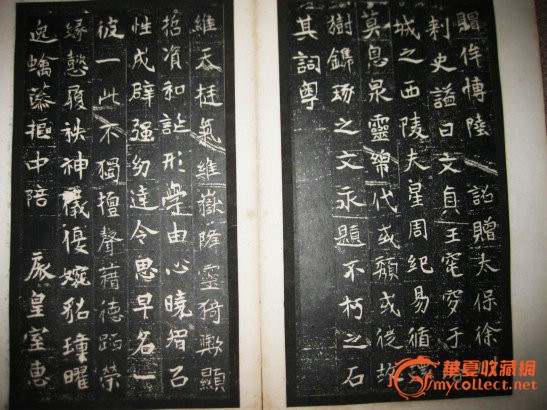 賵侔博陸 詔贈太保徐
刺史謚曰文貞王窀穸于
城之西陵夫星周紀易循
冥息泉靈綿代或頹或從
樹鐫琢之文永題不朽之石
其詞粤
維天挺氣維嶽降靈猗歟顯
哲資和誕形學由心曉智召
性成辟强幼達令思早名一
彼一此不獨擅聲藉德蹈榮
緣懿履秩神儀婉貂璫曜
蟬藻摳中陪 厥皇室惠
華夏收藏網
mycollect.net